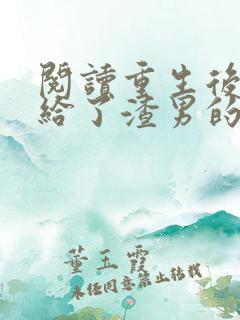 閱讀重生後
給了渣男的
董玉霞
未经同意禁止转载